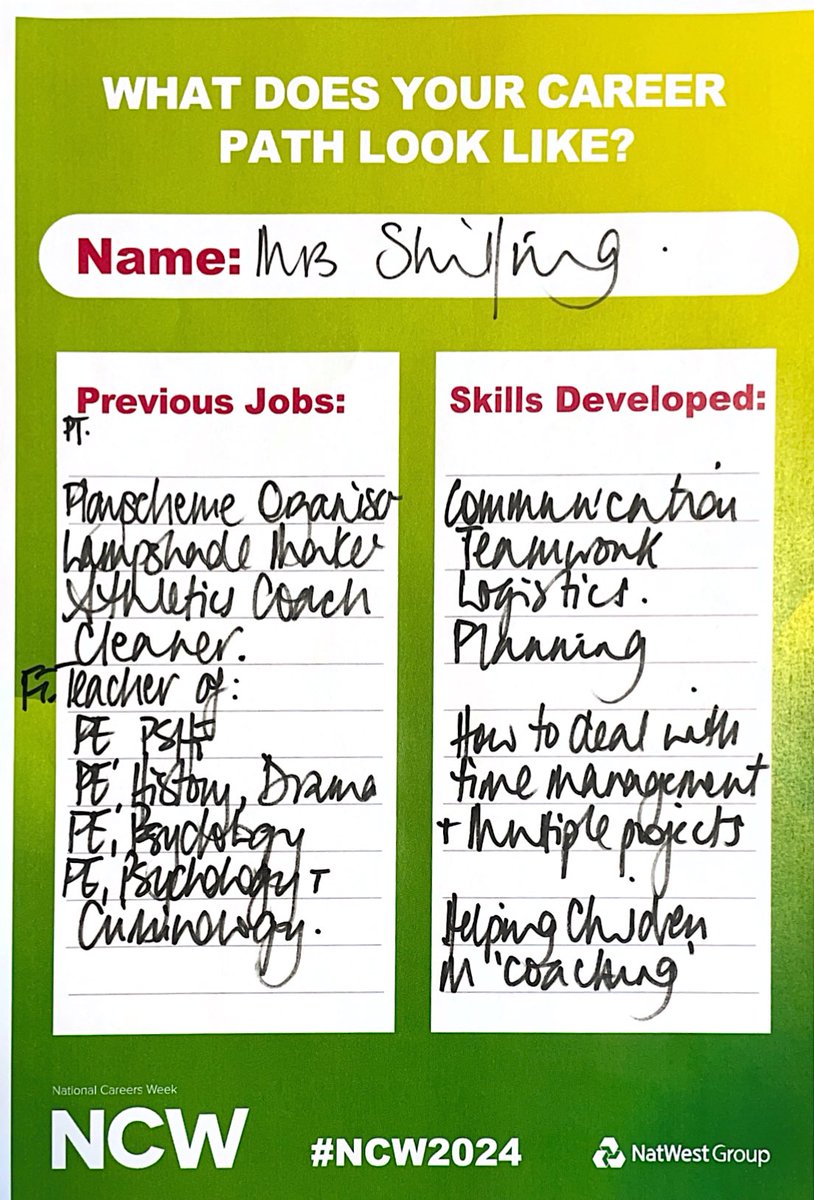 WHAT DOES YOUR CAREER
PATH LOOK LIKE?
Name: Mrs Shilling.
Previous Jobs:
PT.
Playscheme Organiser
Lampshade Maker
Athletics Coach
Cleaner.
FT. Teacher of:
PE PSHE
PE, History, Drama
PE, Psychology
PE, Psychology +
Criminology.
Skills Developed:
Communication
Teamwork
Logistics.
Planning
How to deal with
time management
+ Multiple projects
Helping Children
in 'coaching'
National Careers Week
NCW
#NCW2024
NatWest Group